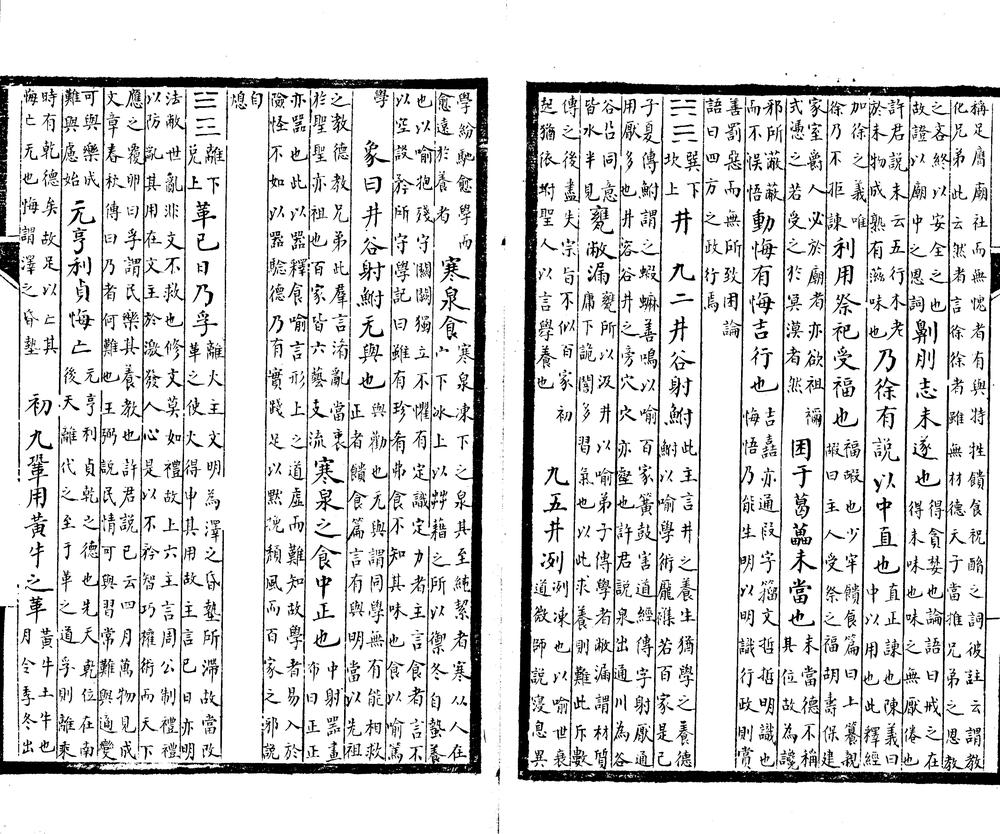 稱足膺廟社而無愧者有與特牲饋食祝酳之詞彼註云謂教
化兄弟此云然者言徐徐者雖無材德天子當推兄弟之恩教
之吝終以安全之也
故證以廟中之思詞
劓刖志未遂也
得貪婪也論語曰戒之在
得未味也味之無厭倦也
許君說未云五行木老
於未物成熟有滋味也
乃徐有說以中直也
直正諫也陳義曰
中以用也此釋經
加徐之義唯
徐乃不拒諫
利用祭祀受福也
福嘏也少牢饋食篇曰上篹親
嘏曰主人受祭之福胡壽保建
家室爵人必於廟者亦欲祖禰
式憑之若受之於冥漠者然
困于葛藟未當也
未當德不稱
其位故為讒
邪所蔽蔽
而誤悟
動悔有悔吉行也
吉嘉亦通叚字籀文哲悊明識也
悔悟乃能生明以明識行政則賞
善罰惡而無所致困論
語曰四方之政行焉
䷯
巽下
坎上
井 九二井谷射鮒
此主言井之養生猶學之養德
鮒以喻學術龐雜若百家是已
子夏傳鮒謂之蝦蟆善鳴以喻百家簧鼓害道經傳字射厭通
用厭多也容谷井之旁穴穴亦壑也許君說泉出通川為谷
谷㕣同意
皆水半見
甕敝漏
甕所以汲井以喻弟子傳學者敝漏謂材質
庸下詭閡多習氣也以此求養則難此斥數
傳之後盡失宗旨不似百家初
起猶依坿聖人以言學養也
九五井冽
冽凍也以喻世衰
道微師說寖息異
學紛馳愈學而
愈遠於養者
寒泉食
寒泉凍下之泉其至純絜者寒从人在
宀下仌上以艸藉之所以禦冬自蟄養
也以喻抱殘守闕闕獨立不懼有定識定力者主言食者言不
以空設矜所守學記曰雖有珍肴弗食不知其味也食以喻篤
學
象曰井谷射鮒无與也
與勸也无與謂同學無有能相救
正者饋食篇言有與明當以先祖
之教德教兄弟此羣言淆亂當衷
於聖聖亦祖也百家皆六藝支流
寒泉之食中正也
中射器畫
布曰正正
亦器也以器釋食喻言形上之道虛而難知故學者易入於
險怪不如以器驗德乃有實踐足以默挽頹風而百家之邪說
自
熄
䷰
離下
兌上
革已日乃孚
離火主文明為澤之昏墊所滯故當改
革之使火得申其用故主言巳日亦明
法敝世亂非文不救也修文莫如禮故上六主言周公制禮禮
以防亂其用在文主於激發人心是以不矜智巧擁術而天下
應之復卵曰孚謂民樂其養教也許君說巳云四月萬物見成
文章春秋傳曰乃者何難也王弼說民情可與習常難與適變
可與樂成
難與慮始
元亨利貞悔亡
元亨利貞乾之德也先天乾位在南
後天離代之至于革之道孚則離乘
時有乾德矣故足以亡其
悔亡无也悔謂澤之昏墊
初九鞏用黃牛之革
黃牛土牛也
月令季冬出